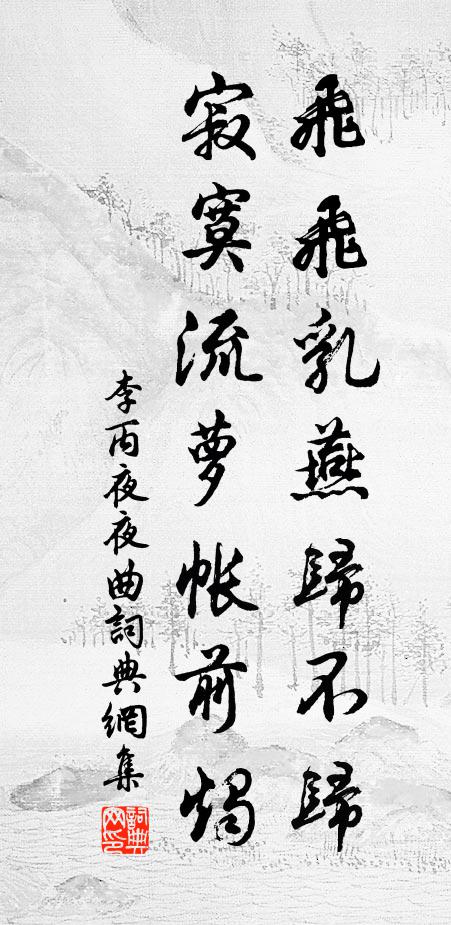 飛飛乳燕歸不歸
寂寞流蘇帳前燭
李丙夜夜曲詞典網集
詞典網印